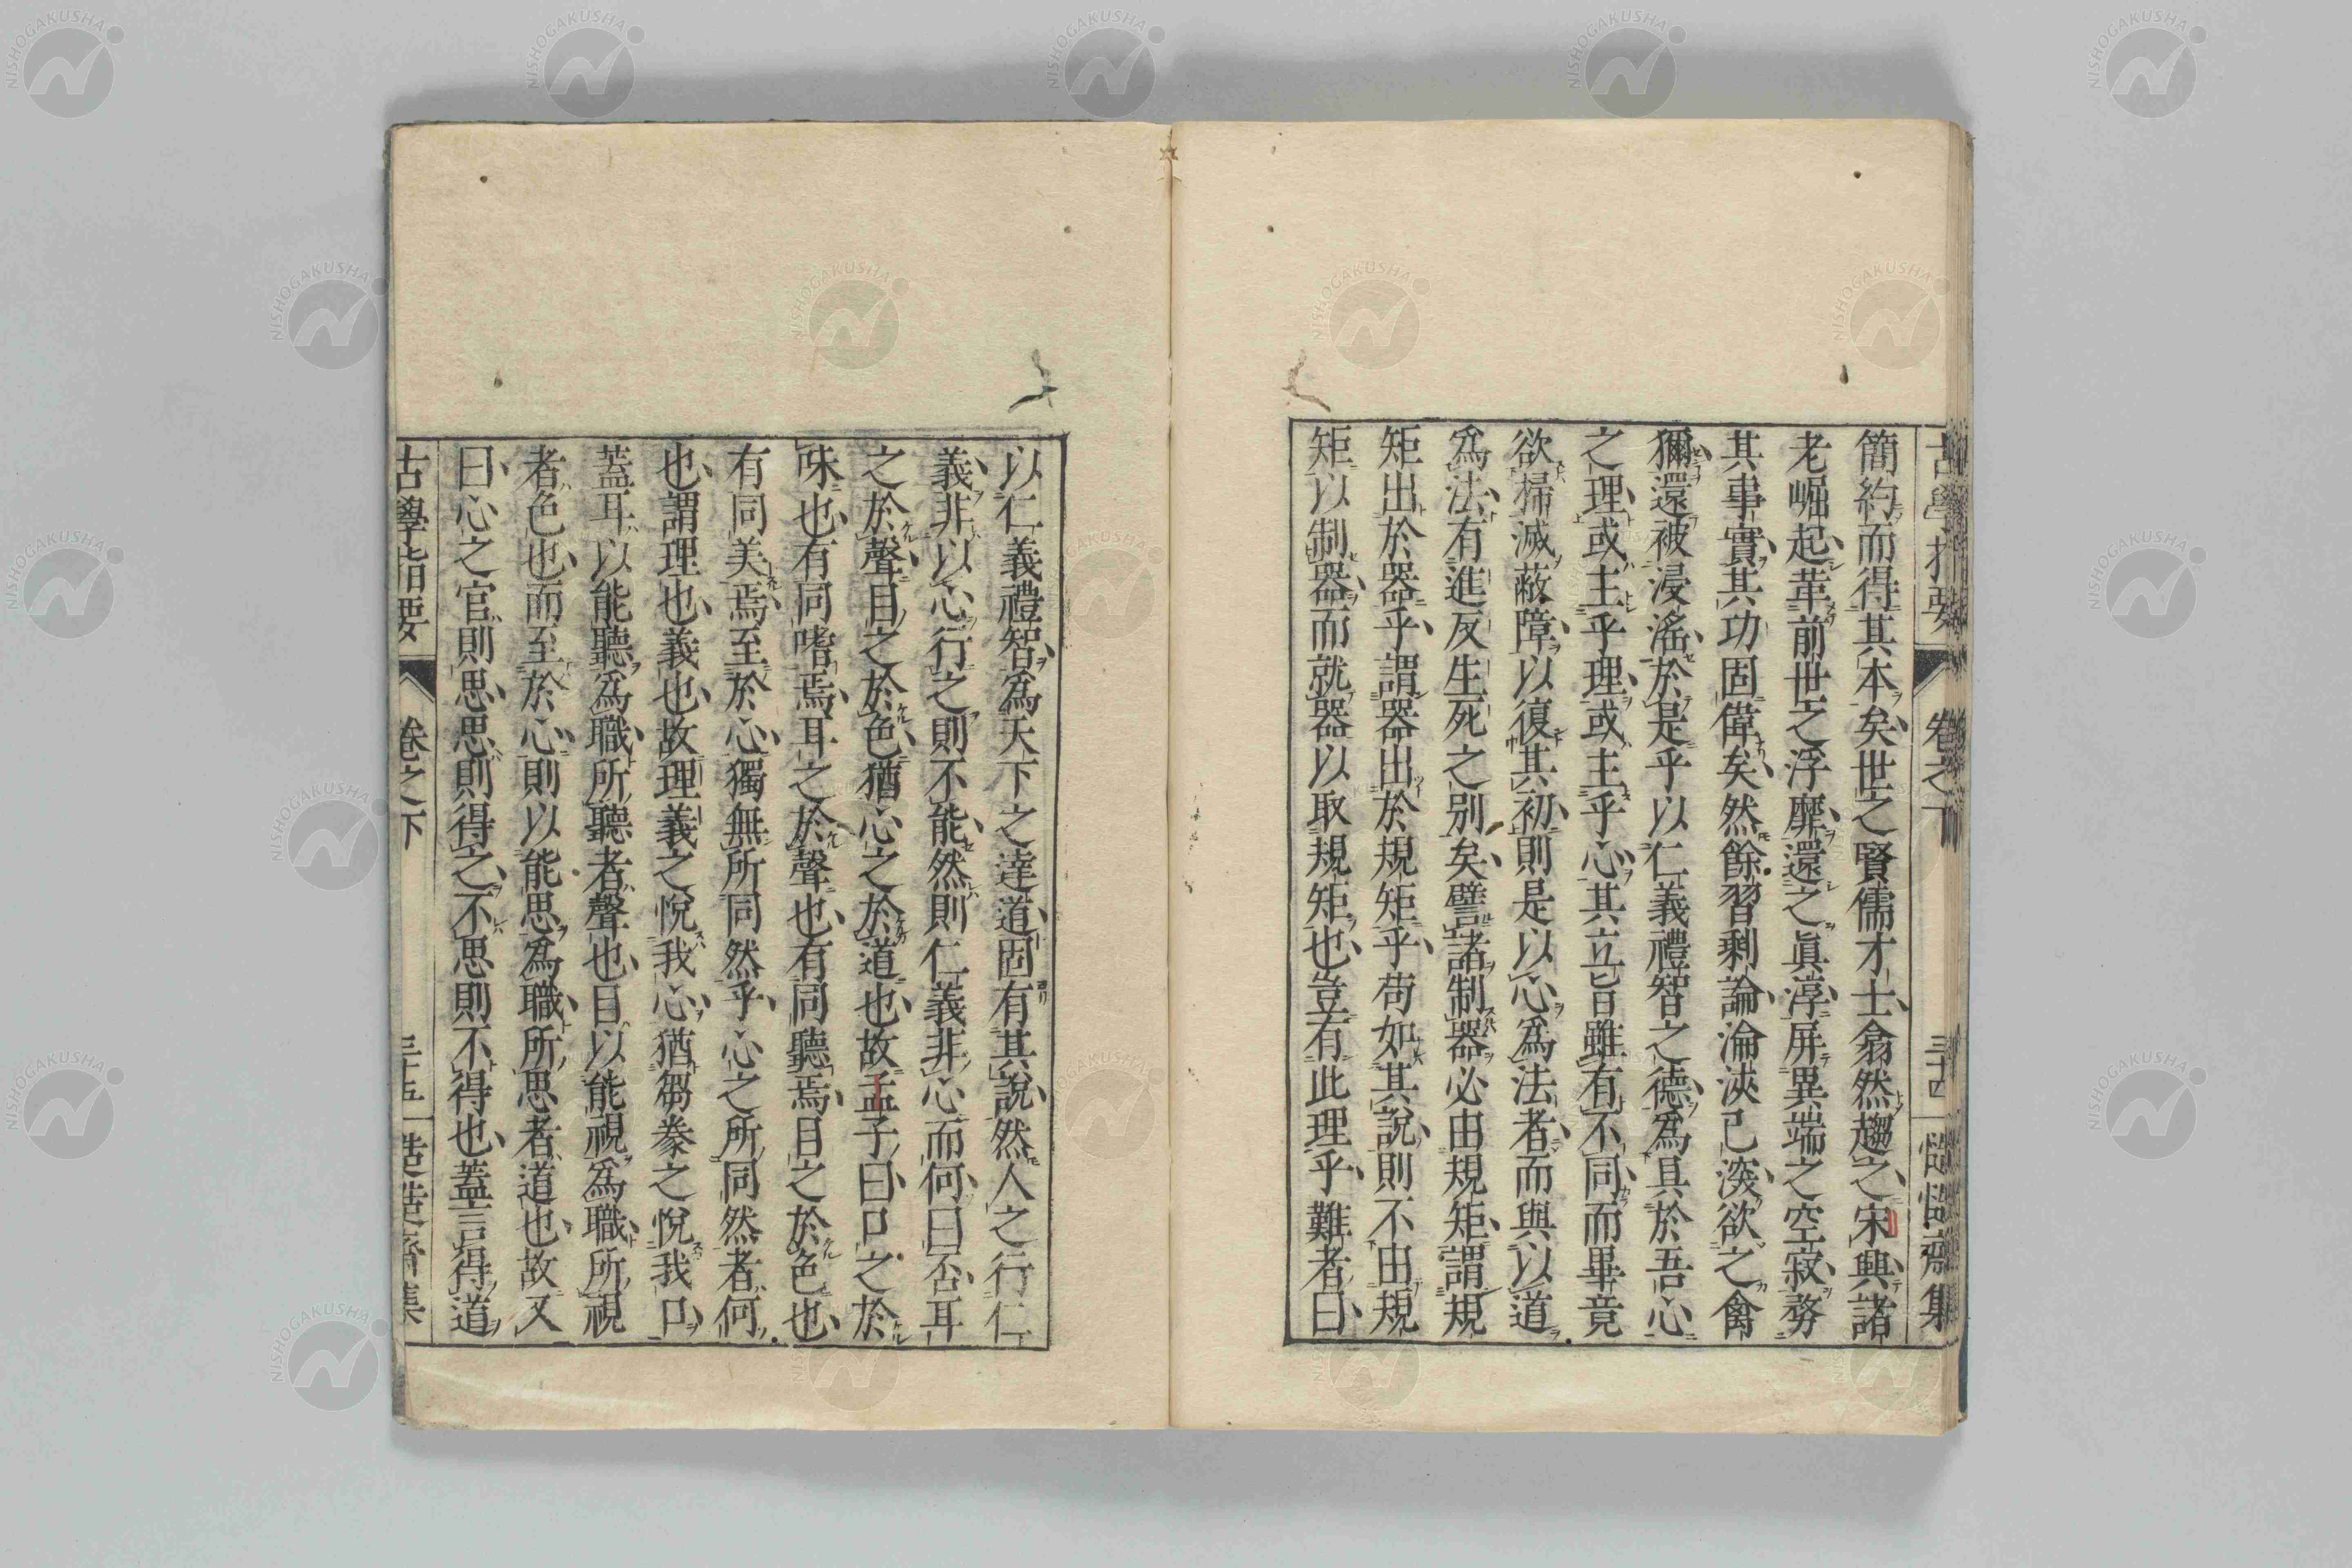 簡約而得其本矣世之賢儒才士翕然趨之宋興諸
老崛起革前世之浮靡還之眞淳屏異端之空寂務
其事實其功固偉矣然餘習剩論淪浹已深欲之禽
獮還被浸淫於是乎以仁義禮智之德爲具於吾心
之理或主乎理或主乎心其立旨雖有不同而畢竟
欲掃滅蔽障以復其初則是以心爲法者而與以道
爲法有進反生死之別矣譬諸制器必由規矩謂規
矩出於器乎謂器出於規矩乎苟如其說則不由規
矩以制器而就器以取規矩也豈有此理乎難者曰
以仁義禮智爲天下之達道固有其說然人之行仁
義非以心行之則不能然則仁義非心而何曰否耳
之於聲目之於色猶心之於道也故孟子曰口之於
味也有同嗜焉耳之於聲也有同聽焉目之於色也
有同美焉至於心獨無所同然乎心之所同然者何
也謂理也義也故理義之悅我心猶芻豢之悅我口
蓋耳以能聽爲職所聽者聲也目以能視爲職所視
者色也而至於心則以能思爲職所思者道也故又
曰心之官則思思則得之不思則不得也蓋言得道
古學指要 卷之下 三十五